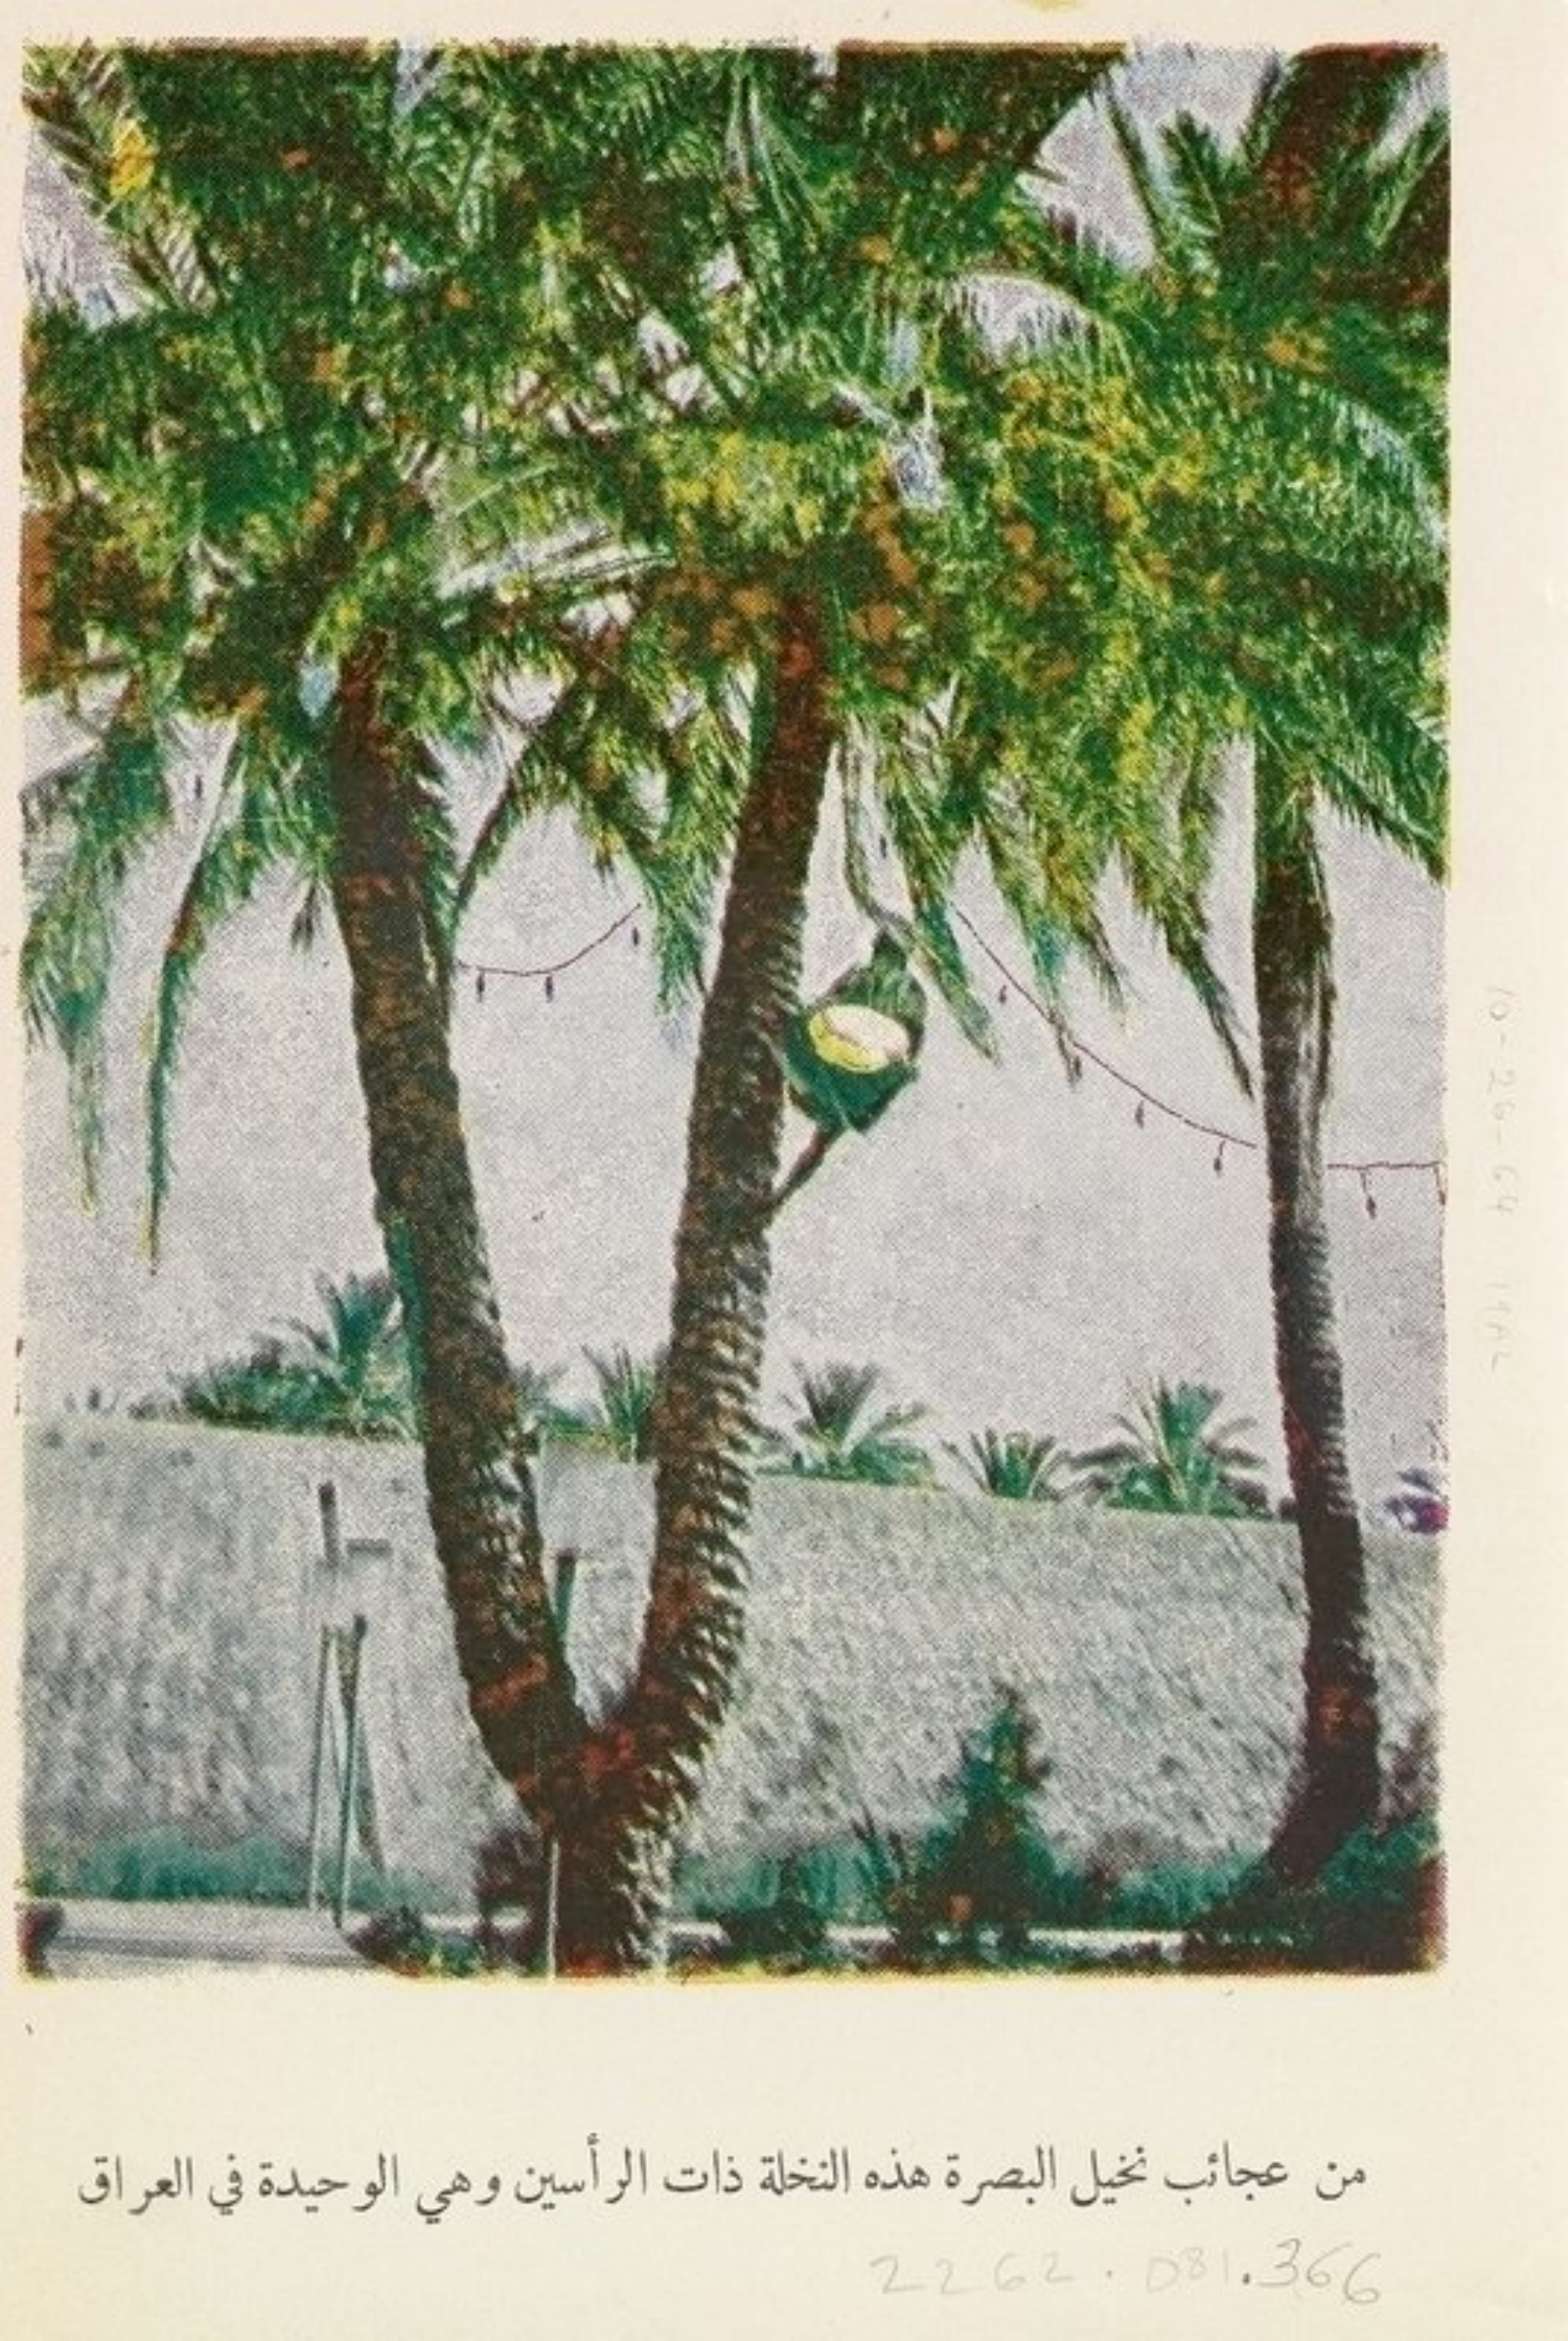 من عجائب نخيل البصرة هذه النخلة ذات الرأسين وهي الوحيدة في العراق
2262.081.366
10-26-64